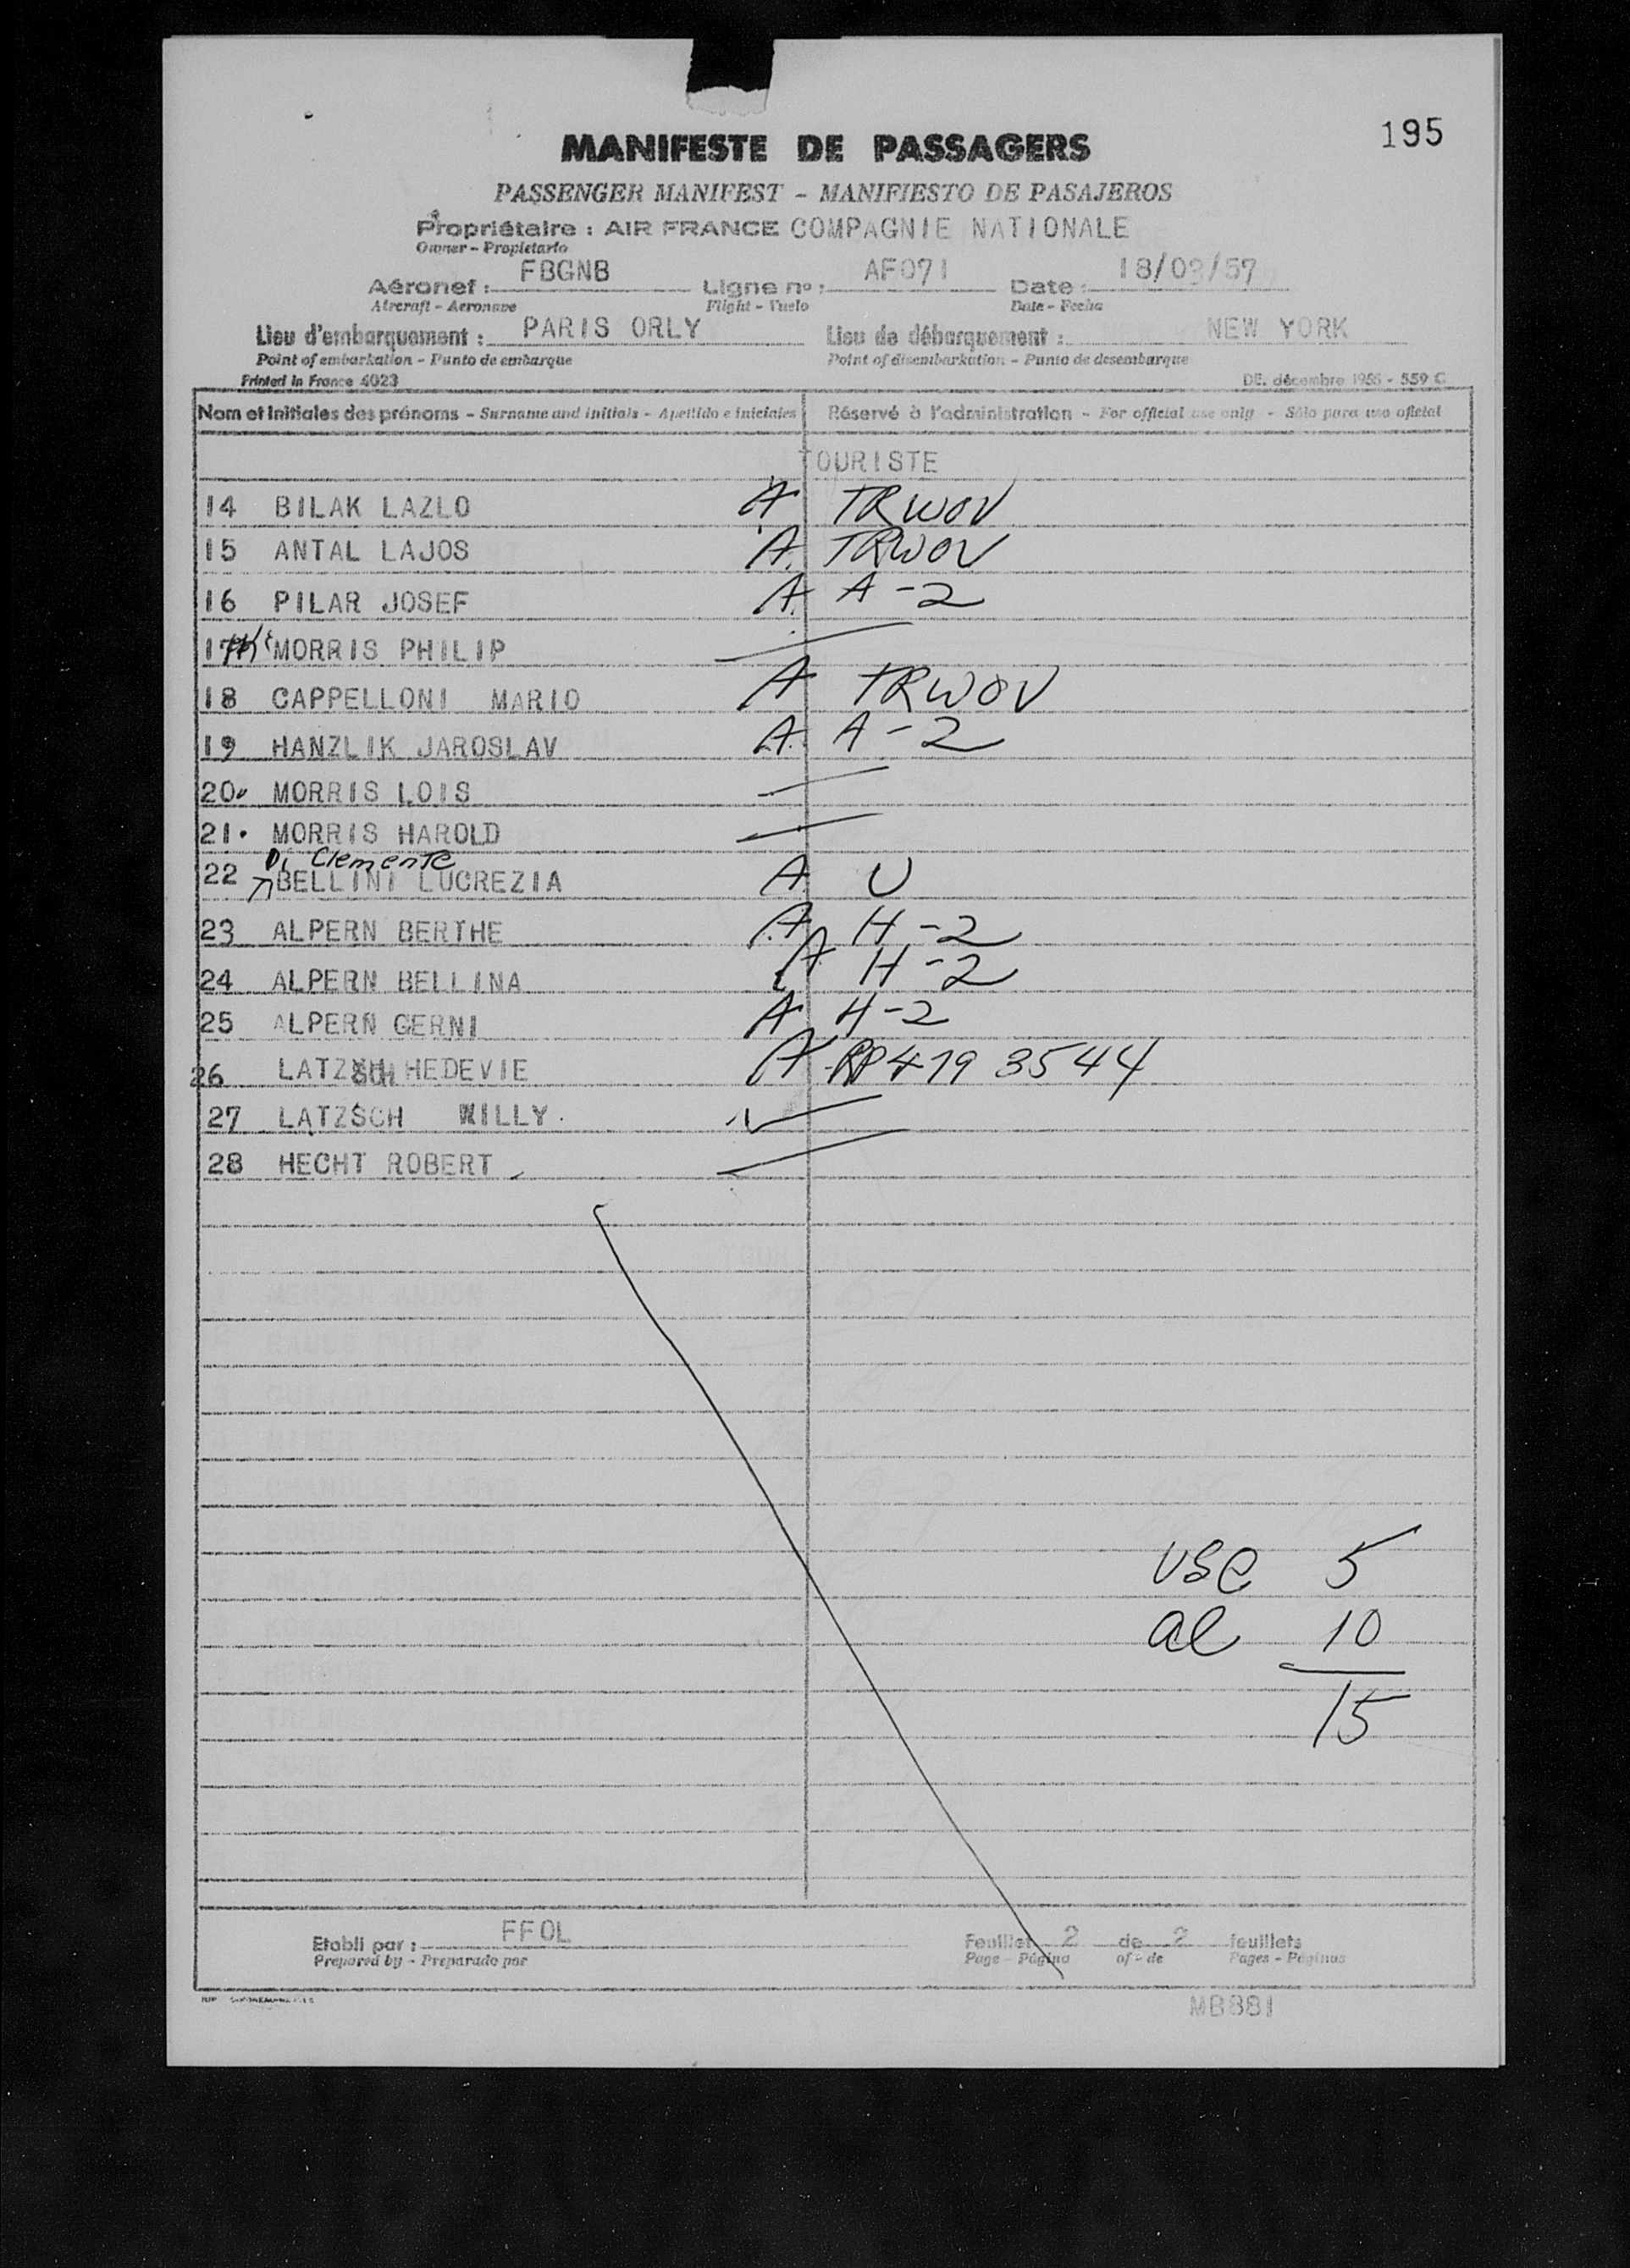 195
MANIFESTE DE PASSAGERS
PASSENGER MANIFEST – MANIFIESTO DE PASAJEROS
Propriétaire : AIR FRANCE COMPAGNIE NATIONALE
Owner – Propietario
Aéronef : FBGNB Ligne no : AF071 Date : 18/03/57
Aircraft – Aeronave Flight – Vuelo Date – Fecha
Lieu d'embarquement : PARIS ORLY Lieu de débarquement : NEW YORK
Point of embarkation – Punto de embarque Point of disembarkation – Punto de desembarque
Printed in France 4023 DE. décembre 1956 - 559 C
Nom et initiales des prénoms – Surname and initials – Apellido e iniciales Réservé à l'administration – For official use only – Sólo para uso oficial
TOURISTE
14 BILAK LAZLO A TRWOV
15 ANTAL LAJOS A TRWOV
16 PILAR JOSEF A A-2
17 MORRIS PHILIP
18 CAPPELLONI MARIO A TRWOV
19 HANZLIK JAROSLAV A A-2
20 MORRIS LOIS
21. MORRIS HAROLD
Di Clemente
22 BELLINI LUCREZIA A U
23 ALPERN BERTHE A H-2
24 ALPERN BELLINA A H-2
25 ALPERN GERNI A H-2
26 LATZSCH HEDEVIE A RP 419 3544
27 LATZSCH WILLY
28 HECHT ROBERT
USC 5
al 10
15
Etabli par : FFOL Feuillet 2 de 2 feuillets
Prepared by – Preparado por Page – Página of – de Pages – Páginas
MB881